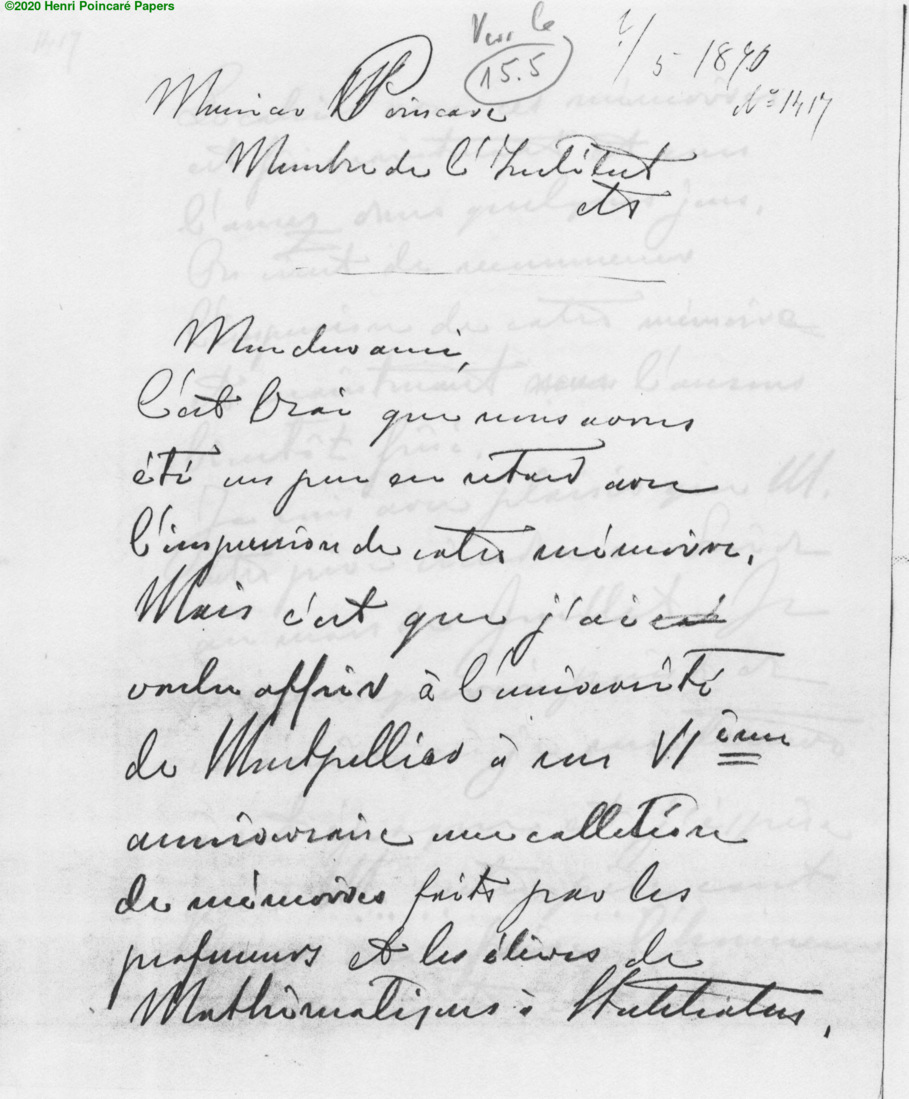 ©2020 Henri Poincaré Papers
1417
15.5
5 1890
No 1417
Monsieur Poincaré
Membre de l'Institut
etc
Mon cher ami,
C'est vrai que nous avons
été un peu en retard avec
l'impression de votre mémoire.
Mais c'est que j'ai
voulu offrir à l'université
de Montpellier à son VIème
anniversaire une colletion
de mémoires faits par les
professeurs et les élèves de
Mathématiques à